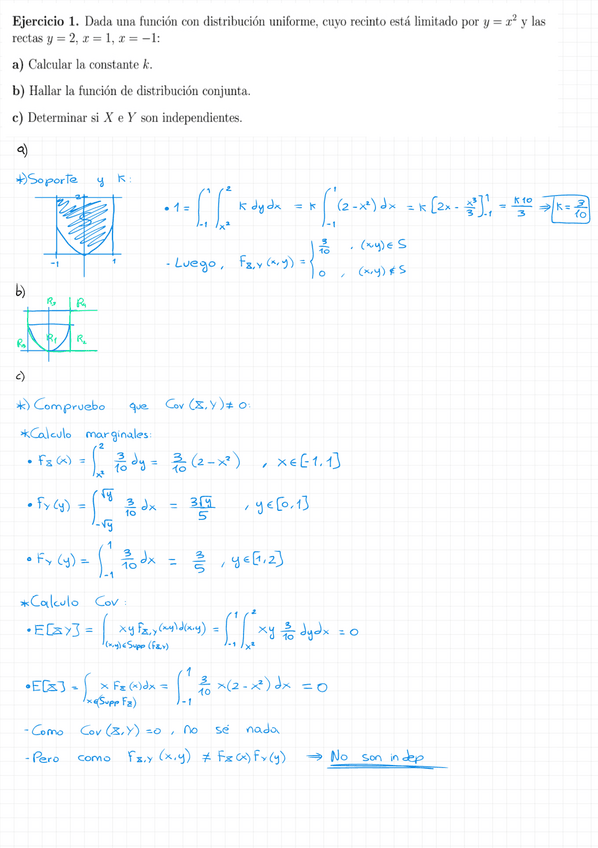 Ejercicio 1. Dada una función con distribución uniforme, cuyo recinto está limitado por y = x² y las
rectas y = 2, x = 1, x = −1:
a) Calcular la constante k.
b) Hallar la función de distribución conjunta.
c) Determinar si X e Y son independientes.
a)
*) Soporte y K:
2
-1 1
• 1 = ∫_{-1}^{1} ∫_{x²}^{2} K dy dx = K ∫_{-1}^{1} (2 - x²) dx = K [2x - x³/3]_{-1}^{1} = K10/3 ⇒ K = 3/10
- Luego, F_{X,Y}(x,y) = { 3/10 , (x,y) ∈ S
0 , (x,y) ∉ S
b)
R₃ R₄
R₁ R₂
c)
*) Compruebo que Cov (X,Y) ≠ 0:
*Calculo marginales:
• F_X(x) = ∫_{x²}^{2} 3/10 dy = 3/10 (2 - x²) , x ∈ [-1,1]
• F_Y(y) = ∫_{-√y}^{√y} 3/10 dx = 3√y/5 , y ∈ [0,1]
• F_Y(y) = ∫_{-1}^{1} 3/10 dx = 3/5 , y ∈ [1,2]
*Calculo Cov:
• E[XY] = ∫_{(x,y)∈Supp(F_{X,Y})} xy f_{X,Y}(x,y) d(x,y) = ∫_{-1}^{1} ∫_{x²}^{2} xy 3/10 dy dx = 0
• E[X] = ∫_{x∈Supp F_X} x F_X(x) dx = ∫_{-1}^{1} 3/10 x(2 - x²) dx = 0
- Como Cov (X,Y) = 0, no sé nada
- Pero como F_{X,Y}(x,y) ≠ F_X(x) F_Y(y) ⇒ No son indep